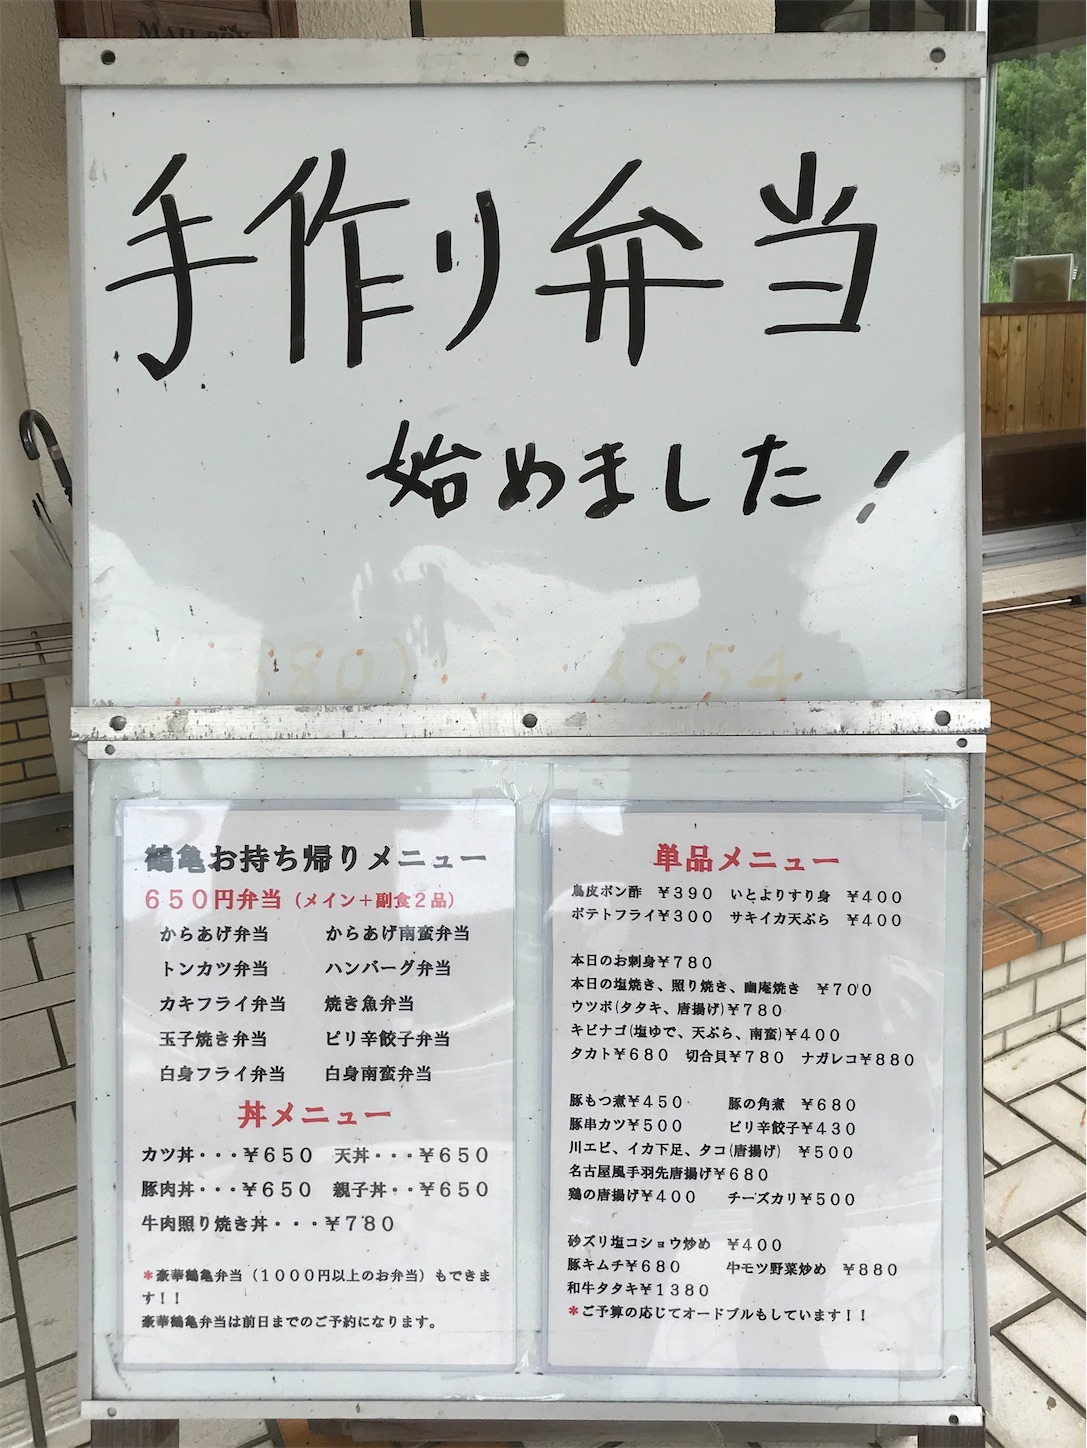 MAIL BOX
手作り弁当
始めました!
鶴亀お持ち帰りメニュー
650円弁当(メイン+副食2品)
からあげ弁当 からあげ南蛮弁当
トンカツ弁当 ハンバーグ弁当
カキフライ弁当 焼き魚弁当
玉子焼き弁当 ピリ辛餃子弁当
白身フライ弁当 白身南蛮弁当
丼メニュー
カツ丼・・・¥650 天丼・・・¥650
豚肉丼・・・¥650 親子丼・・¥650
牛肉照り焼き丼・・・¥780
*豪華鶴亀弁当(1000円以上のお弁当)もできま
す!!
豪華鶴亀弁当は前日までのご予約になります。
単品メニュー
鳥皮ポン酢 ¥390 いとよりすり身 ¥400
ポテトフライ¥300 サキイカ天ぷら ¥400
本日のお刺身¥780
本日の塩焼き、照り焼き、幽庵焼き ¥700
ウツボ(タタキ、唐揚げ)¥780
キビナゴ(塩ゆで、天ぷら、南蛮)¥400
タカト¥680 切合貝¥780 ナガレコ¥880
豚もつ煮¥450 豚の角煮 ¥680
豚串カツ¥500 ピリ辛餃子¥430
川エビ、イカ下足、タコ(唐揚げ) ¥500
名古屋風手羽先唐揚げ¥680
鶏の唐揚げ¥400 チーズカリ¥500
砂ズリ塩コショウ炒め ¥400
豚キムチ¥680 牛モツ野菜炒め ¥880
和牛タタキ¥1380
*ご予算の応じてオードブルもしています!!